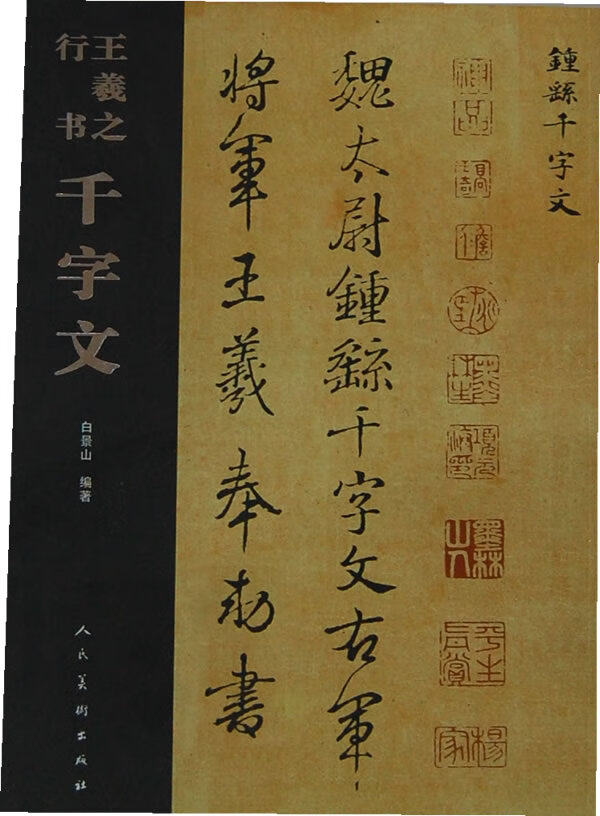 王羲之
行书
千字文
白景山 编著
人民美術出版社
鍾繇千字文
墨林山人
平生真賞
魏太尉鍾繇千字文右軍
将軍王羲奉勅書